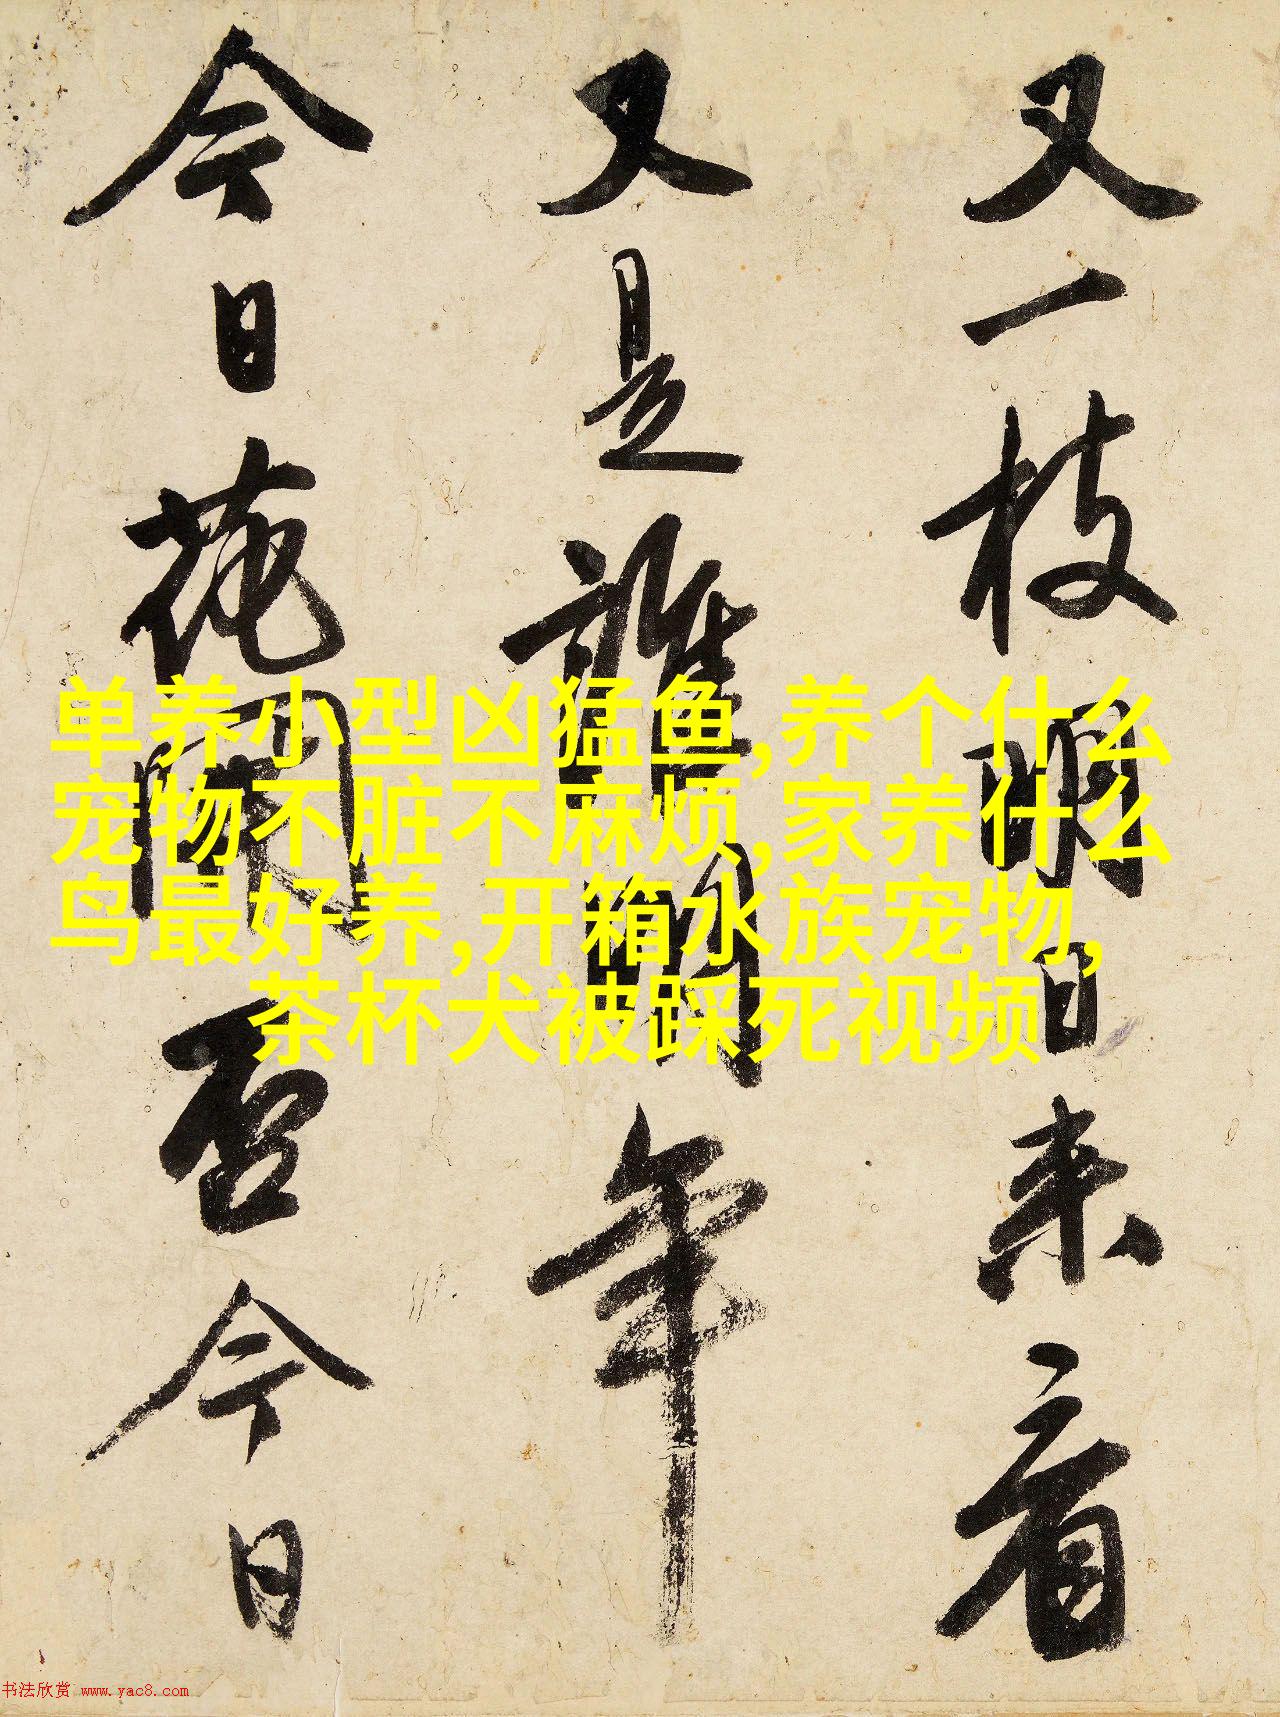 又一枝明日来看
又是誰開年
今日花開否今日
单养小型凶猛鱼,养个什么
宠物不脏不麻烦,家养什么
鸟最好养,开箱水族宠物,
茶杯犬被踩死视频
书法欣赏 www.yac8.com